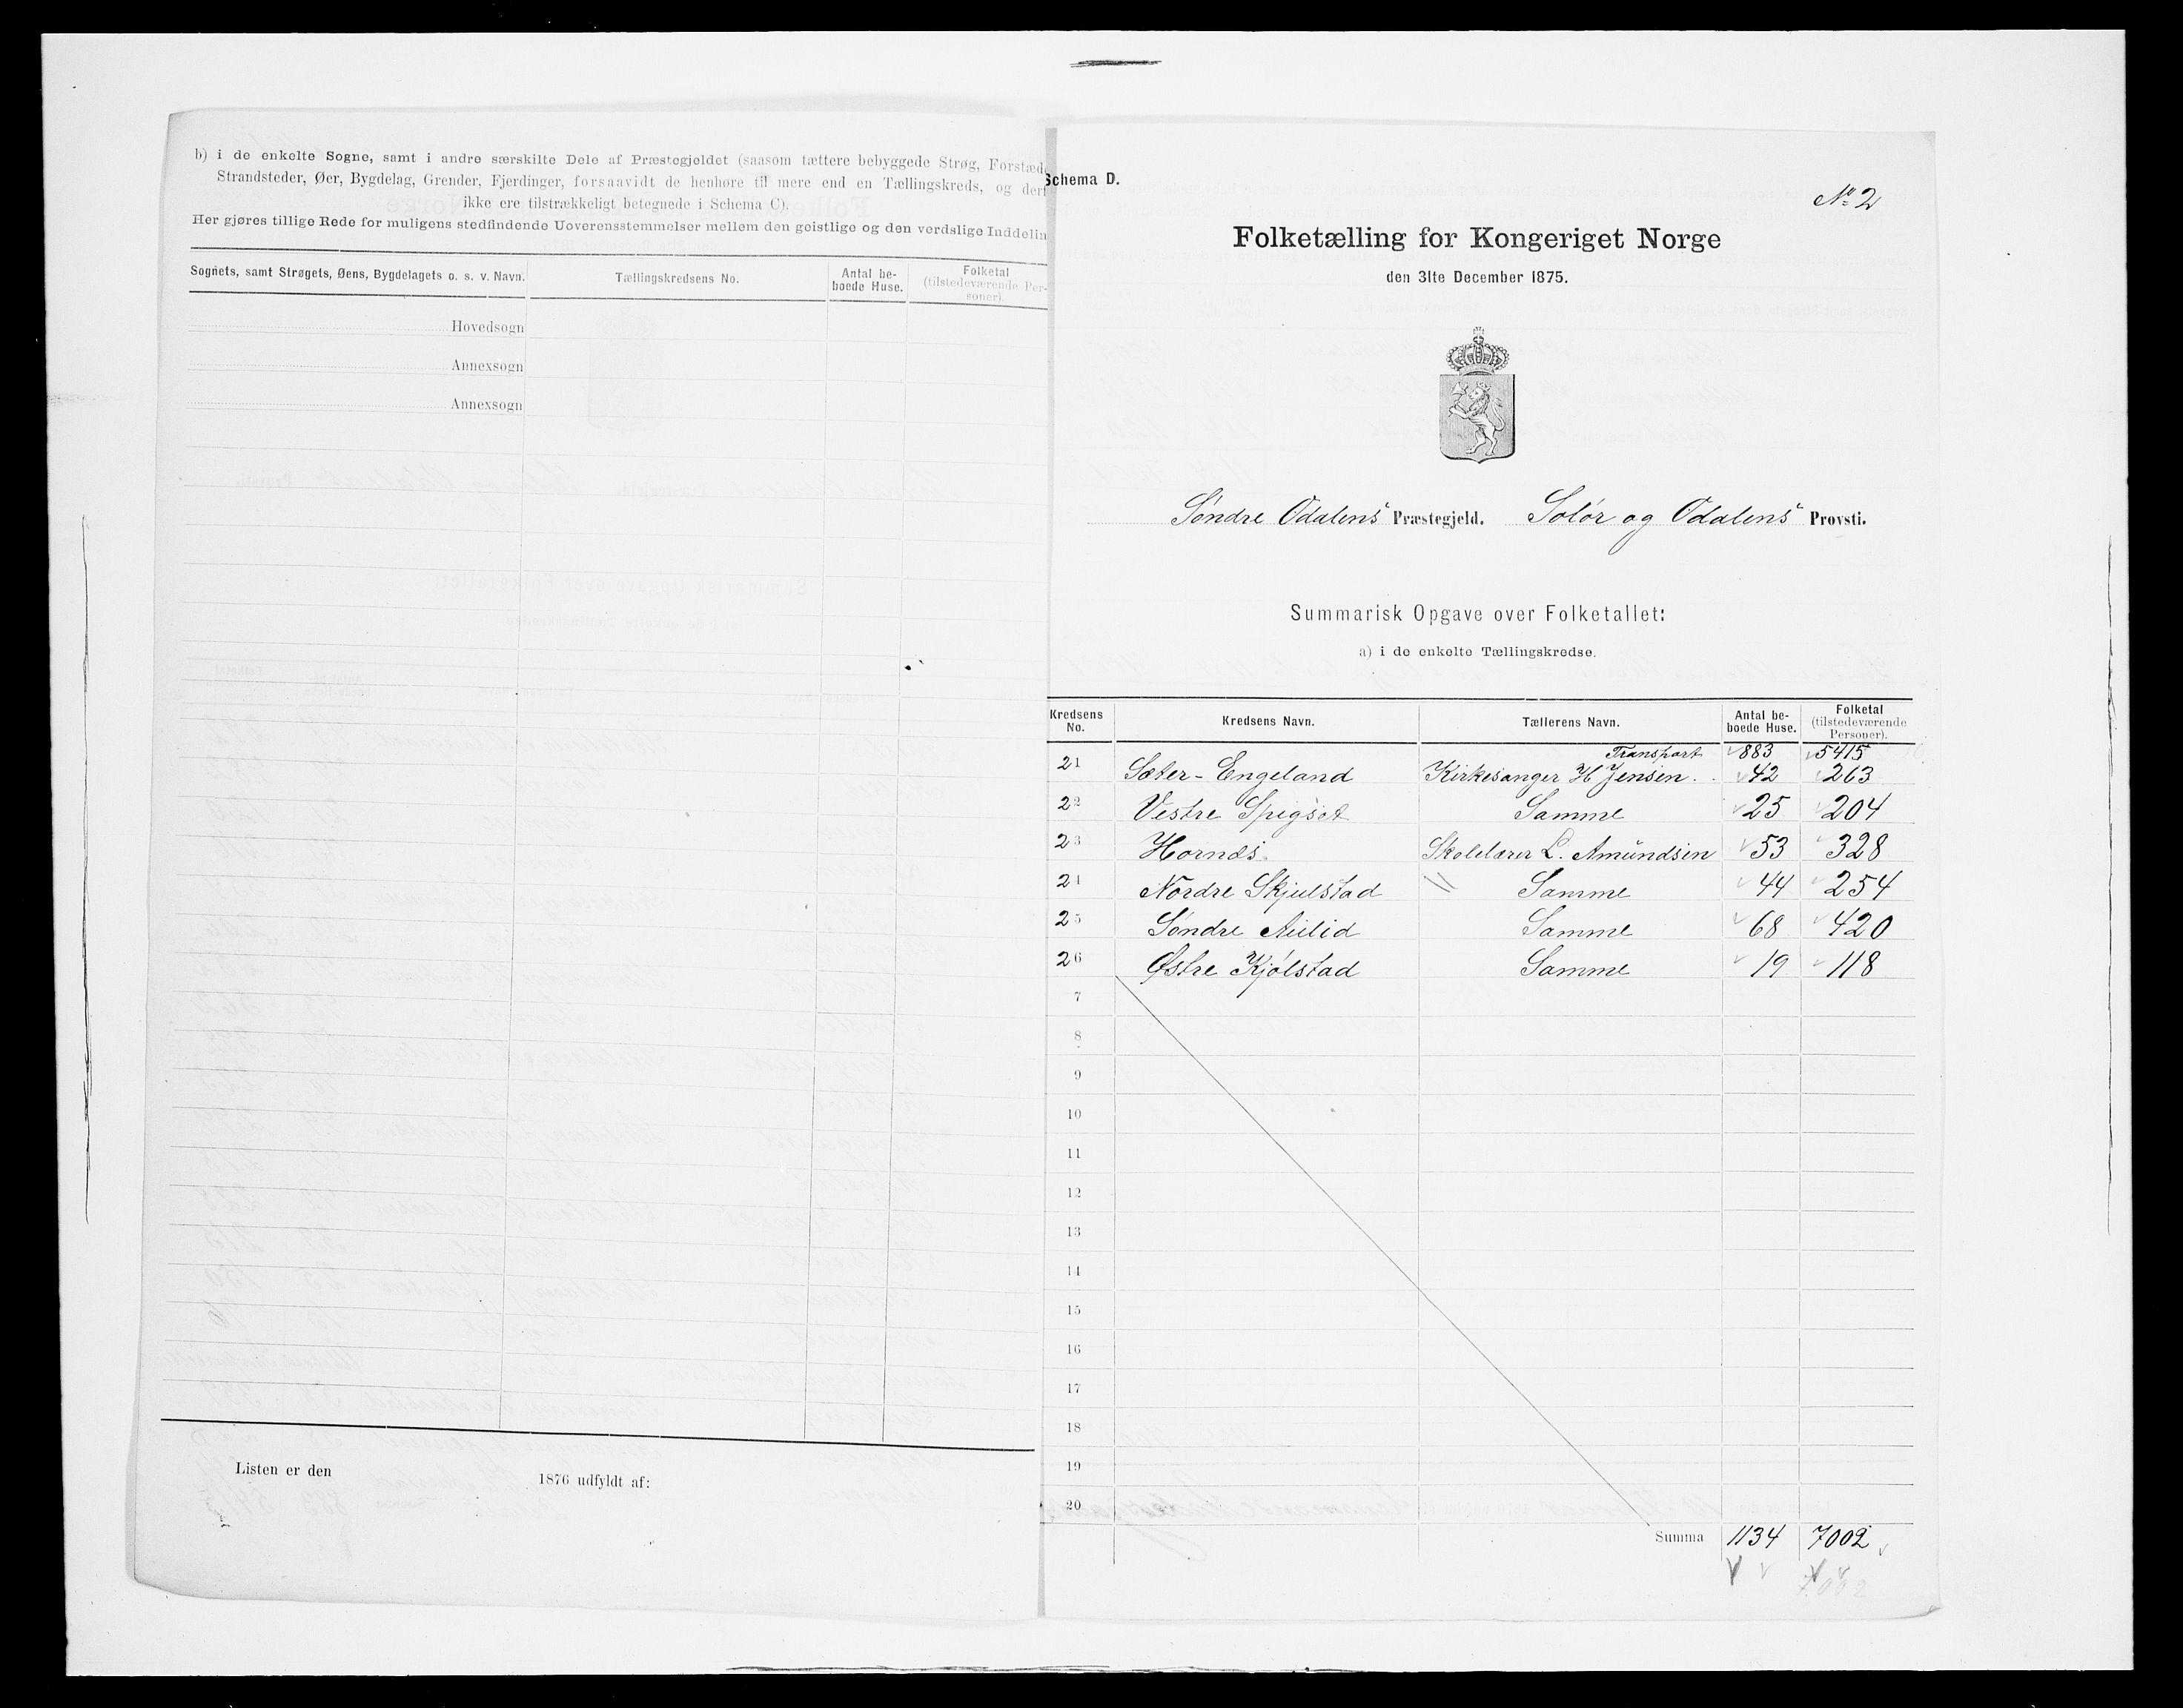 b) i de enkelte Sogne, samt i andre særskilte Dele af Præstegjeldet (saasom tættere bebyggede Strøg, Forstæd
Strandsteder, Øer, Bygdelag, Grender, Fjerdinger, forsaavidt de henhøre til mere end en Tællingskreds, og der
ikke ere tilstrækkeligt betegnede i Schema C).
Her gjøres tillige Rede for muligens stedfindende Uoverensstemmelser mellem den geistlige og den verdslige Inddelin
Sognets, samt Strøgets, Øens, Bygdelagets o. s. v. Navn. Tællingskredsens No. Antal be-boede Huse. Folketal (tilstedeværende Per-soner).
Hovedsogn
Annexsogn
Annexsogn
Listen er den 1876 udfyldt af:
Schema D.
No 2
Folketælling for Kongeriget Norge
den 31te December 1875.
Søndre Odalens Præstegjeld. Solør og Odalens Provsti.
Summarisk Opgave over Folketallet:
a) i de enkelte Tællingskredse.
Kredsens No. Kredsens Navn. Tællerens Navn. Antal be-boede Huse. Folketal (tilstedeværende Personer).
Transport 883 5415
21 Sæter-Engeland Kirkesanger H Jensen. 42 263
22 Vestre Spigset Samme 25 204
23 Hornæs Skolelærer L. Amundsen 53 328
24 Nordre Skjulstad Samme 44 254
25 Søndre Aulid Samme 68 420
26 Østre Kjølstad Samme 19 118
7
8
9
10
11
12
13
14
15
16
17
18
19
20
Summa 1134 7002
7002